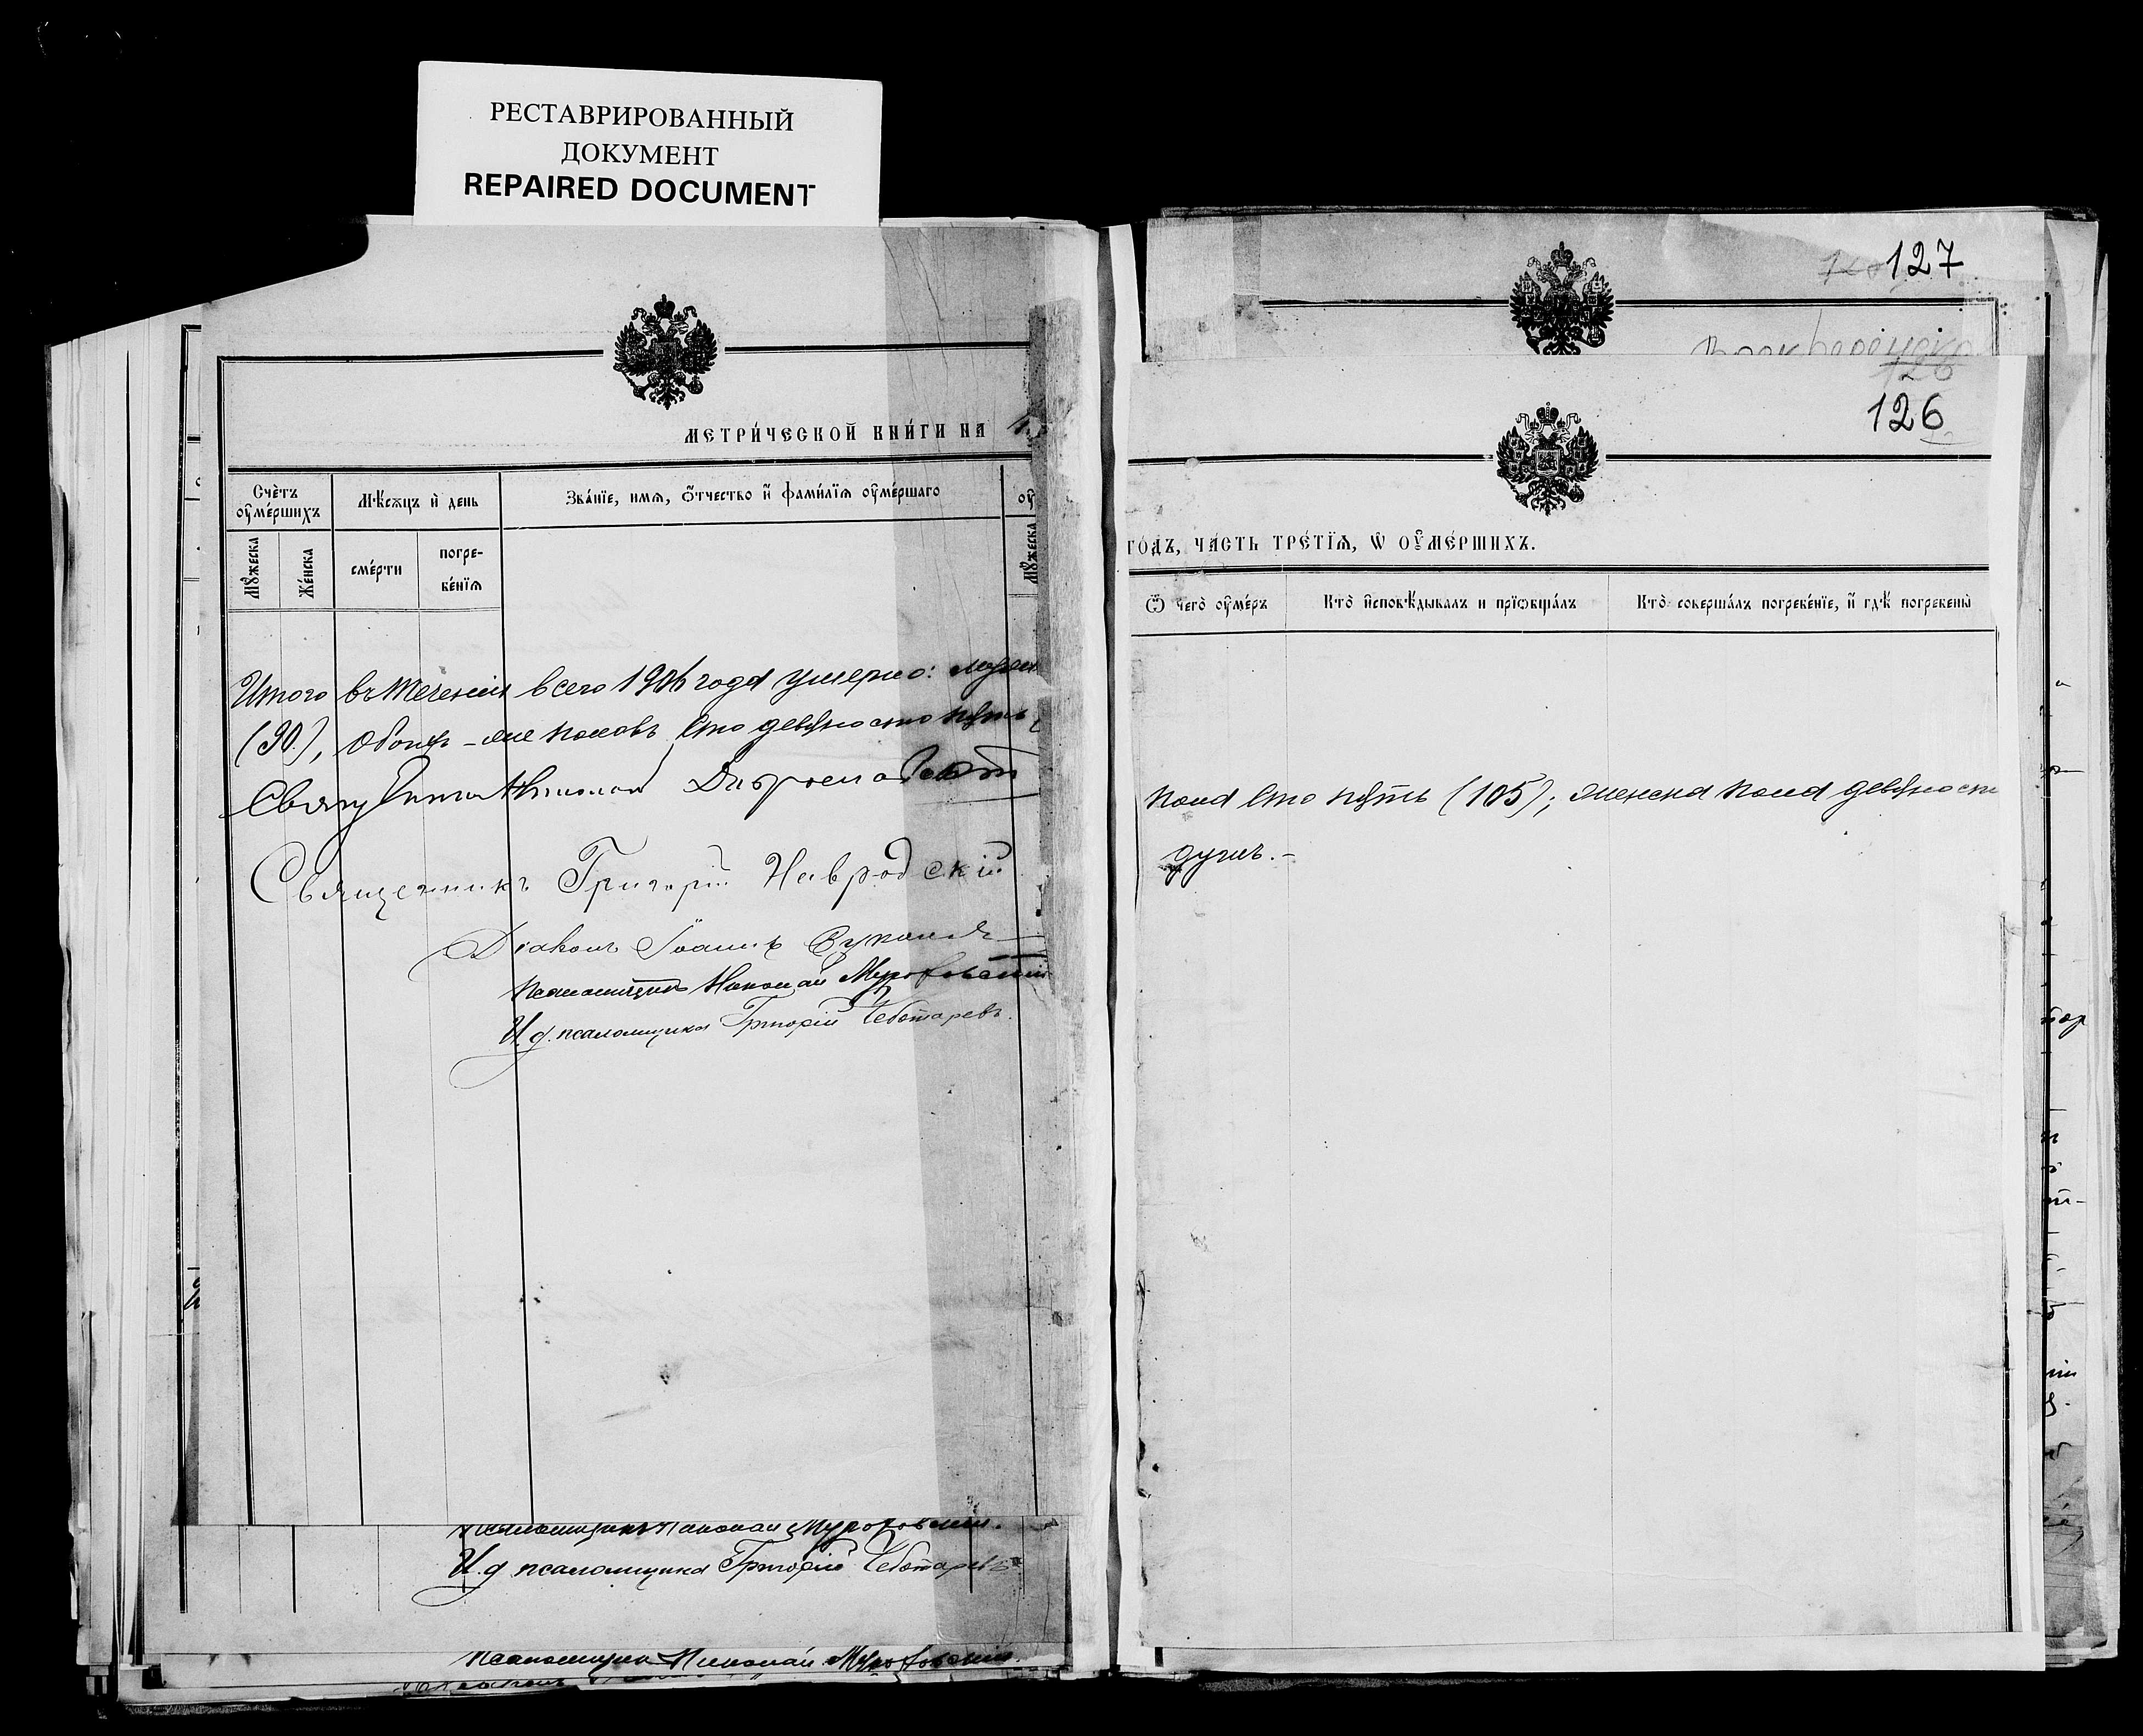 РЕСТАВРИРОВАННЫЙ
ДОКУМЕНТ
REPAIRED DOCUMENT
МЕТРИ́ЧЕСКОЙ КНИ́ГИ НА
Сче́тъ ᲂу҆ме́ршихъ
Мѣ́сѧцъ и҆ день
Зва́нїе, имѧ, ѻ҆́тчество и҆ фами́лїѧ ᲂу҆ме́ршагѡ
Мꙋ́жеска
Же́нска
сме́рти
погре-
бе́нїѧ
Мꙋ́жеска
Итого въ теченіи всего 1906 года умерло: мужск
(90), обоихъ-же половъ сто девяносто пять
Священникъ Григорій Навродскій
Діаконъ Іоаннъ
Псаломщикъ Николай Мурофовскій
И. д. псаломщика Григорій Чеботаревъ.
Псаломщикъ Николай Мурофовскій.
И. д. псаломщика Григорій Чеботаревъ
Псаломщикъ Николай Мурофовскій.
127
126
126
ГО́ДЪ, ЧА́СТЬ ТРЕ́ТЇѦ, Ѡ҆ ОУ҆МЕ́РШИХЪ.
Ѿ чегѡ̀ ᲂу҆ме́ръ
Кто̀ и҆сповѣ́дывалъ и прїѡбща́лъ
Кто̀ соверша́лъ погребе́нїе, и҆ гдѣ̀ погребены̀
пола сто пять (105); женска пола девяносто
душъ.-